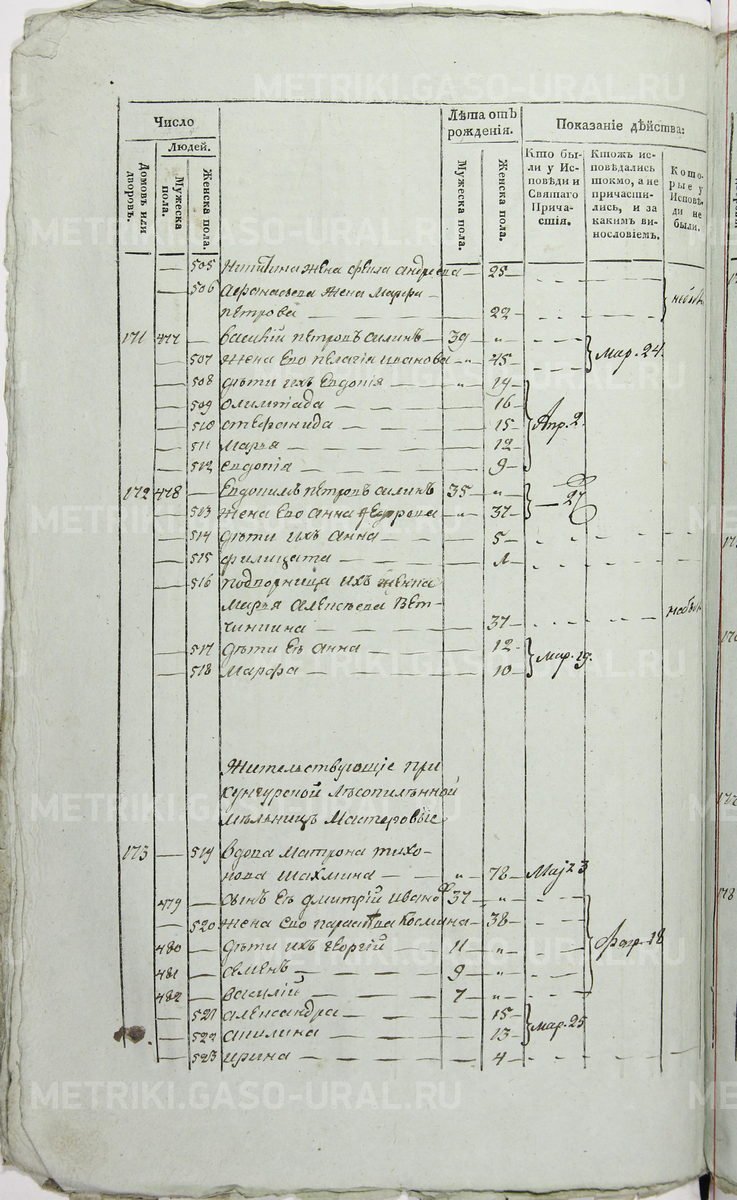 METRIKI.GASO-URAL.RU
Число
Людей.
Домовъ или дворовъ.
Мужеска пола.
Женска пола.
Лѣта отъ рожденія.
Мужеска пола.
Женска пола.
Показаніе дѣйства:
Кто были у Исповѣди и Святаго Причастія.
Ктожъ исповѣдались токмо, а не причастились, и за какимъ винословіемъ.
Которые у Исповѣди не были.
— 505 жена Андреева — 25
— 506 Афанасьева жена Марфа
Петрова — 22
171 477 — Василій Петровъ Силинъ — 39 „
— 507 жена Ево Пелагія Иванова „ 45 Мар. 24.
— 508 дѣти ихъ Евдокія — „ 19
— 509 Олимпіада — 16
— 510 Стефанида — 15 Апр. 2.
— 511 Марья — 12
— 512 Евдокія — 9
172 478 — Евдокимъ Петровъ Силинъ 35 „ — 27
— 513 жена Ево Анна „ 37
— 514 дѣти ихъ Анна — 5
— 515 Филицата —
— 516 подворница ихъ женка
Марья Алексѣева
— 37
— 517 дѣти Еѣ Анна — 12 Мар. 19.
— 518 Марфа — 10
Жительствующіе при
Кунгурской Лѣсопилѣнной
мѣльницѣ Мастеровые
173 — 519 вдова Матрона Тихо-
нова Шахмина — „ 78 Маj 23
479 — сынъ Еѣ Дмитрій Ивановъ 37 „
— 520 жена Ево Параскева Космина — 38
480 — дѣти ихъ Георгій — 11 „ Февр. 18
481 — Семенъ — 9 „
482 — Василій — 7 „
— 521 Александра — 15
— 522 Акилина — 13 Мар. 25
— 523 Ирина — 4